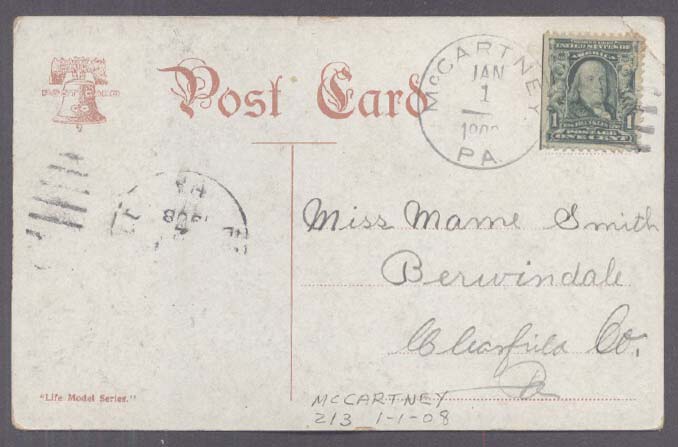 Post Card
McCARTNEY
JAN
1
PA.
UNITED STATES OF
AMERICA
1 1
POSTAGE
ONE CENT
Miss Mame Smith
Berwindale
Clearfield Co.
Pa
"Life Model Series."
MCCARTNEY
213 1-1-08